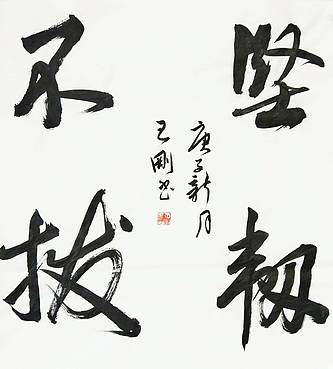 坚韧
不拔
庚子新月
王刚书